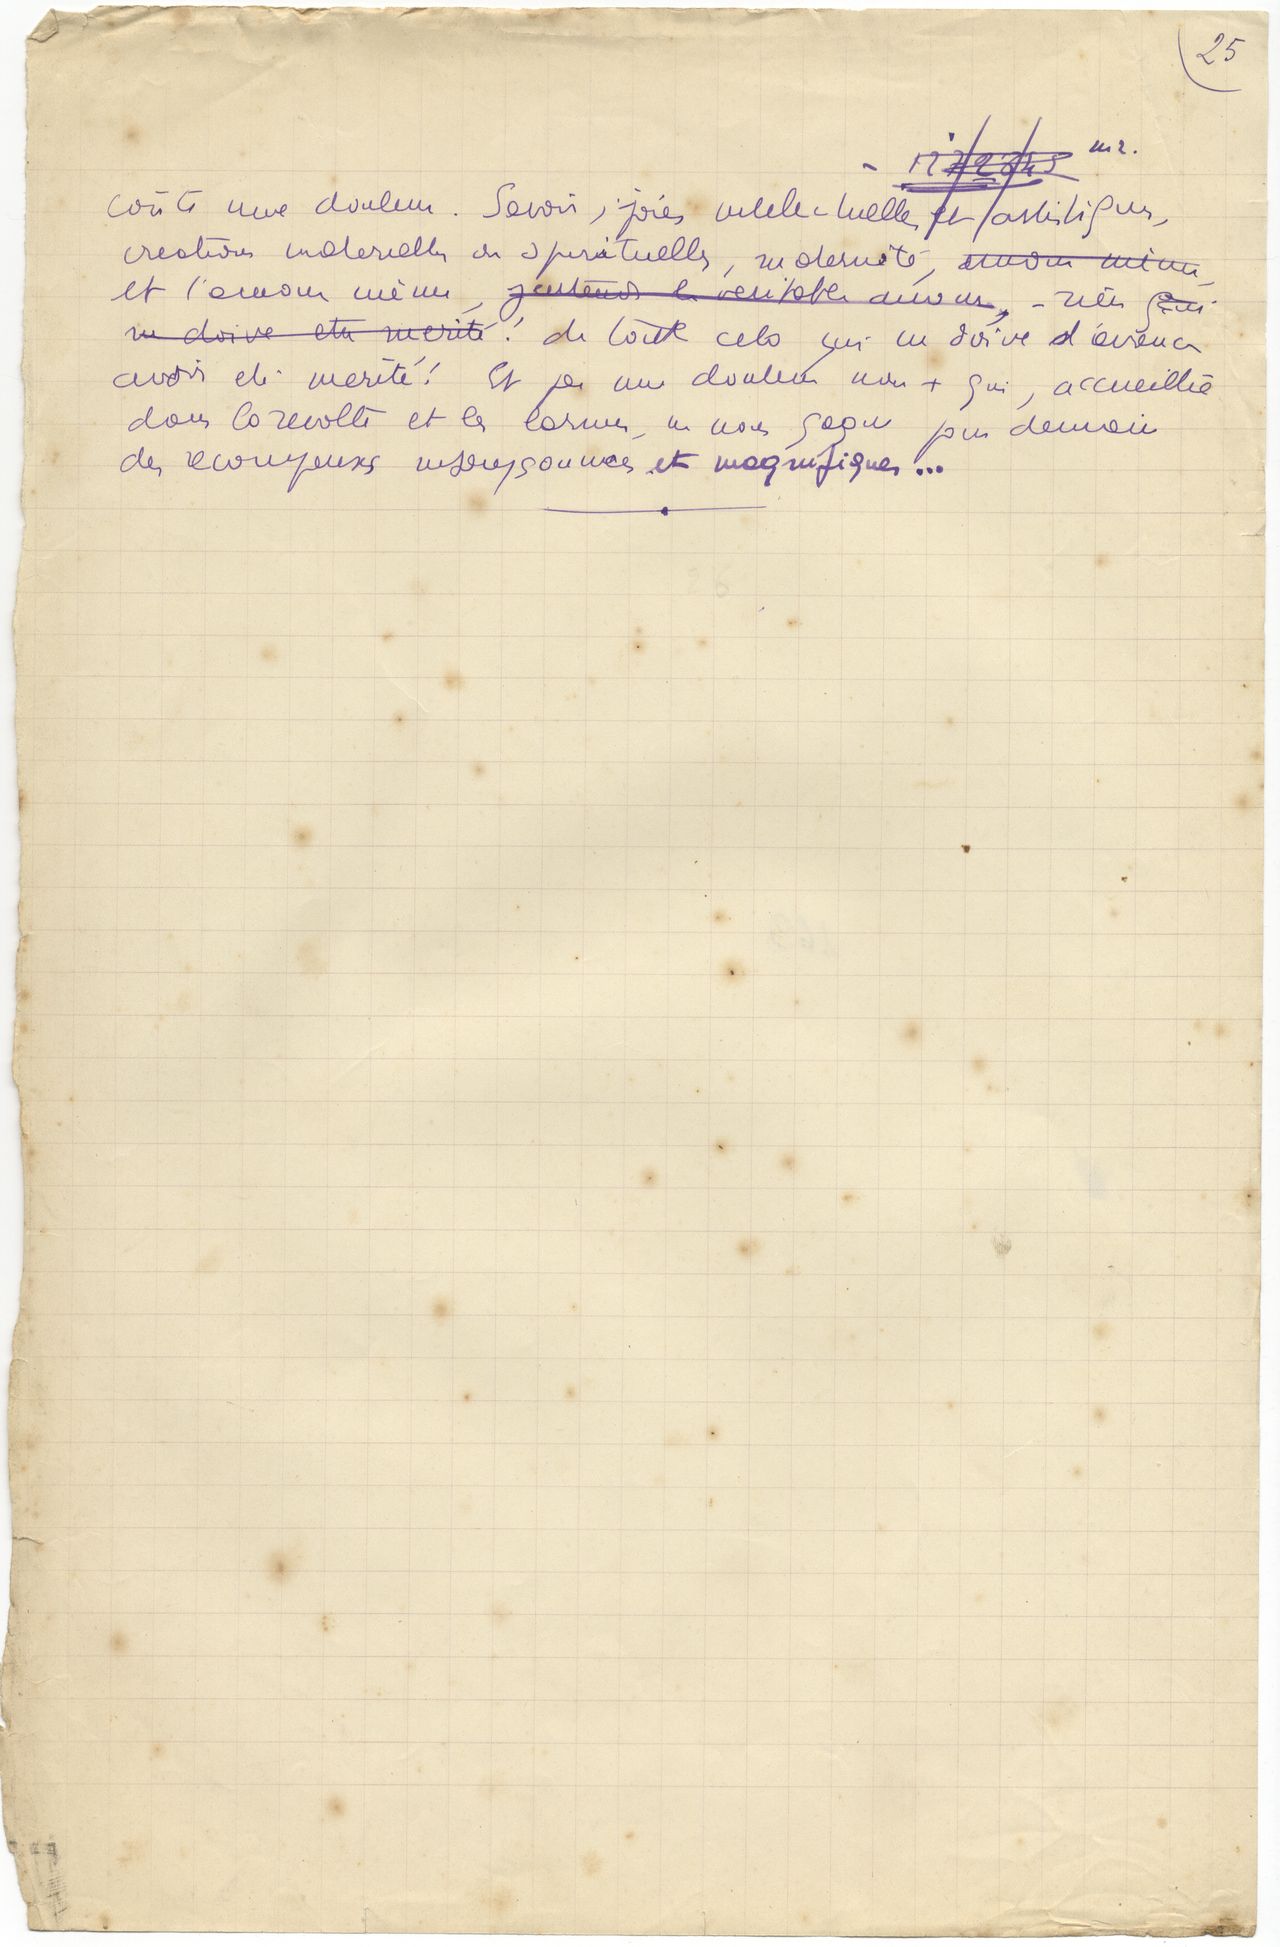 25
coûte une douleur. Savoir, joies intellectuelles et artistiques,
creations materielles ou spirituelles, maternité, amour même,
et l'amour même, j'entends le veritable amour, - rien qui
ne doive etre merité! de tout cela qui ne doive d'avance
avoir été merité! Et pas une douleur non + qui, accueillie
dans la revolte et les larmes, ne nous gagne pour demain
des recompenses insoupçonnées et magnifiques...